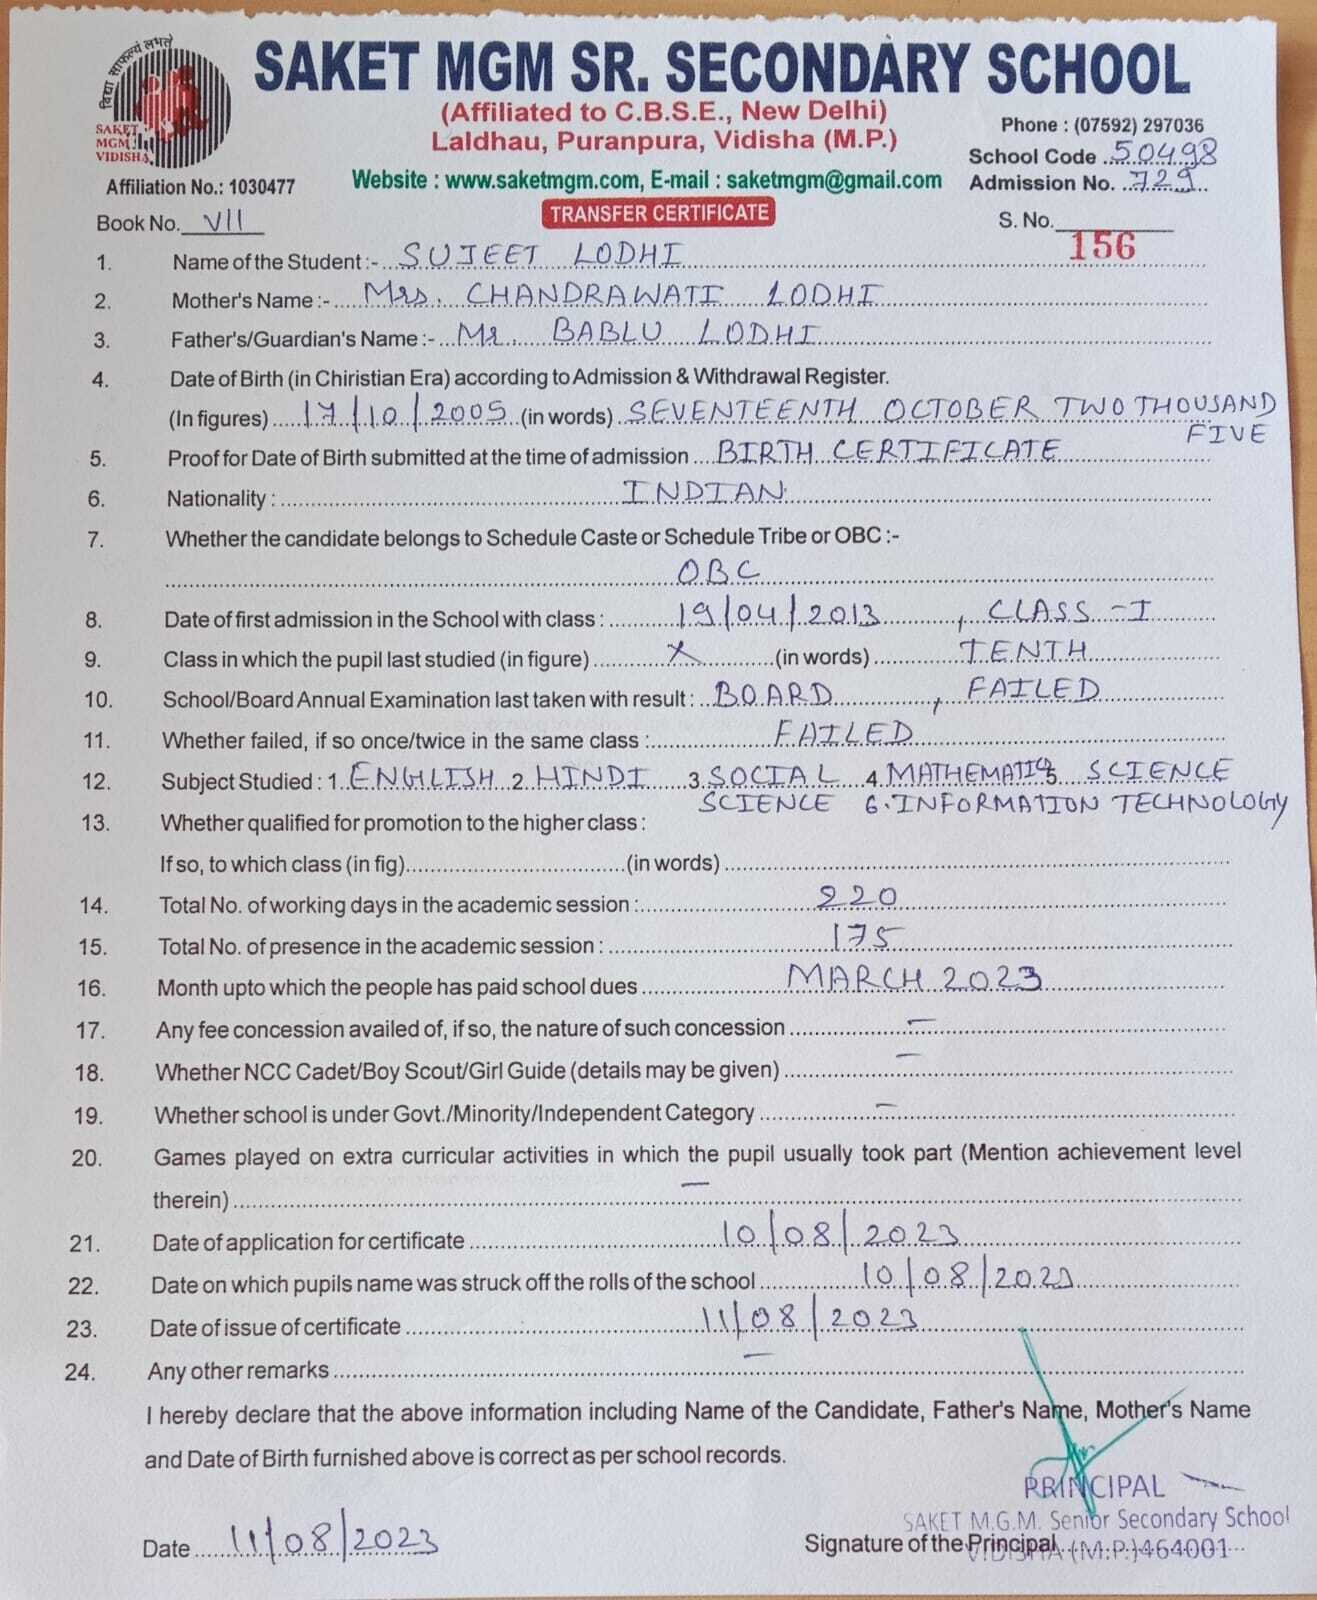 विद्या साफल्यं लभते
SAKET
MGM
VIDISHA
SAKET MGM SR. SECONDARY SCHOOL
(Affiliated to C.B.S.E., New Delhi)
Laldhau, Puranpura, Vidisha (M.P.)
Phone : (07592) 297036
School Code ..50498
Affiliation No.: 1030477
Website : www.saketmgm.com, E-mail : saketmgm@gmail.com
Admission No. ..729..
Book No. VII
TRANSFER CERTIFICATE
S. No. 156
1. Name of the Student :- SUJEET LODHI
2. Mother's Name :- Mrs. CHANDRAWATI LODHI
3. Father's/Guardian's Name :- Mr. BABLU LODHI
4. Date of Birth (in Chiristian Era) according to Admission & Withdrawal Register.
(In figures) 17/10/2005 (in words) SEVENTEENTH OCTOBER TWO THOUSAND
FIVE
5. Proof for Date of Birth submitted at the time of admission BIRTH CERTIFICATE
6. Nationality : INDIAN
7. Whether the candidate belongs to Schedule Caste or Schedule Tribe or OBC :-
OBC
8. Date of first admission in the School with class : 19/04/2013 , CLASS -I
9. Class in which the pupil last studied (in figure) X (in words) TENTH
10. School/Board Annual Examination last taken with result : BOARD , FAILED
11. Whether failed, if so once/twice in the same class : FAILED
12. Subject Studied : 1. ENGLISH 2. HINDI 3. SOCIAL 4. MATHEMATICS 5. SCIENCE
SCIENCE 6. INFORMATION TECHNOLOGY
13. Whether qualified for promotion to the higher class :
If so, to which class (in fig) (in words)
14. Total No. of working days in the academic session : 220
15. Total No. of presence in the academic session : 175
16. Month upto which the people has paid school dues MARCH 2023
17. Any fee concession availed of, if so, the nature of such concession —
18. Whether NCC Cadet/Boy Scout/Girl Guide (details may be given) —
19. Whether school is under Govt./Minority/Independent Category —
20. Games played on extra curricular activities in which the pupil usually took part (Mention achievement level
therein) —
21. Date of application for certificate 10/08/2023
22. Date on which pupils name was struck off the rolls of the school 10/08/2023
23. Date of issue of certificate 11/08/2023
24. Any other remarks —
I hereby declare that the above information including Name of the Candidate, Father's Name, Mother's Name
and Date of Birth furnished above is correct as per school records.
PRINCIPAL
SAKET M.G.M. Senior Secondary School
Date 11/08/2023
Signature of the Principal
VIDISHA (M.P.) 464001